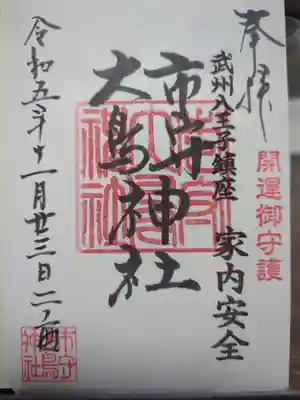 奉拝
開運御守護
武州八王子鎮座　家内安全
市守神社
大鳥神社
令和五年十一月廿三日二ノ酉
市守
大鳥
神社